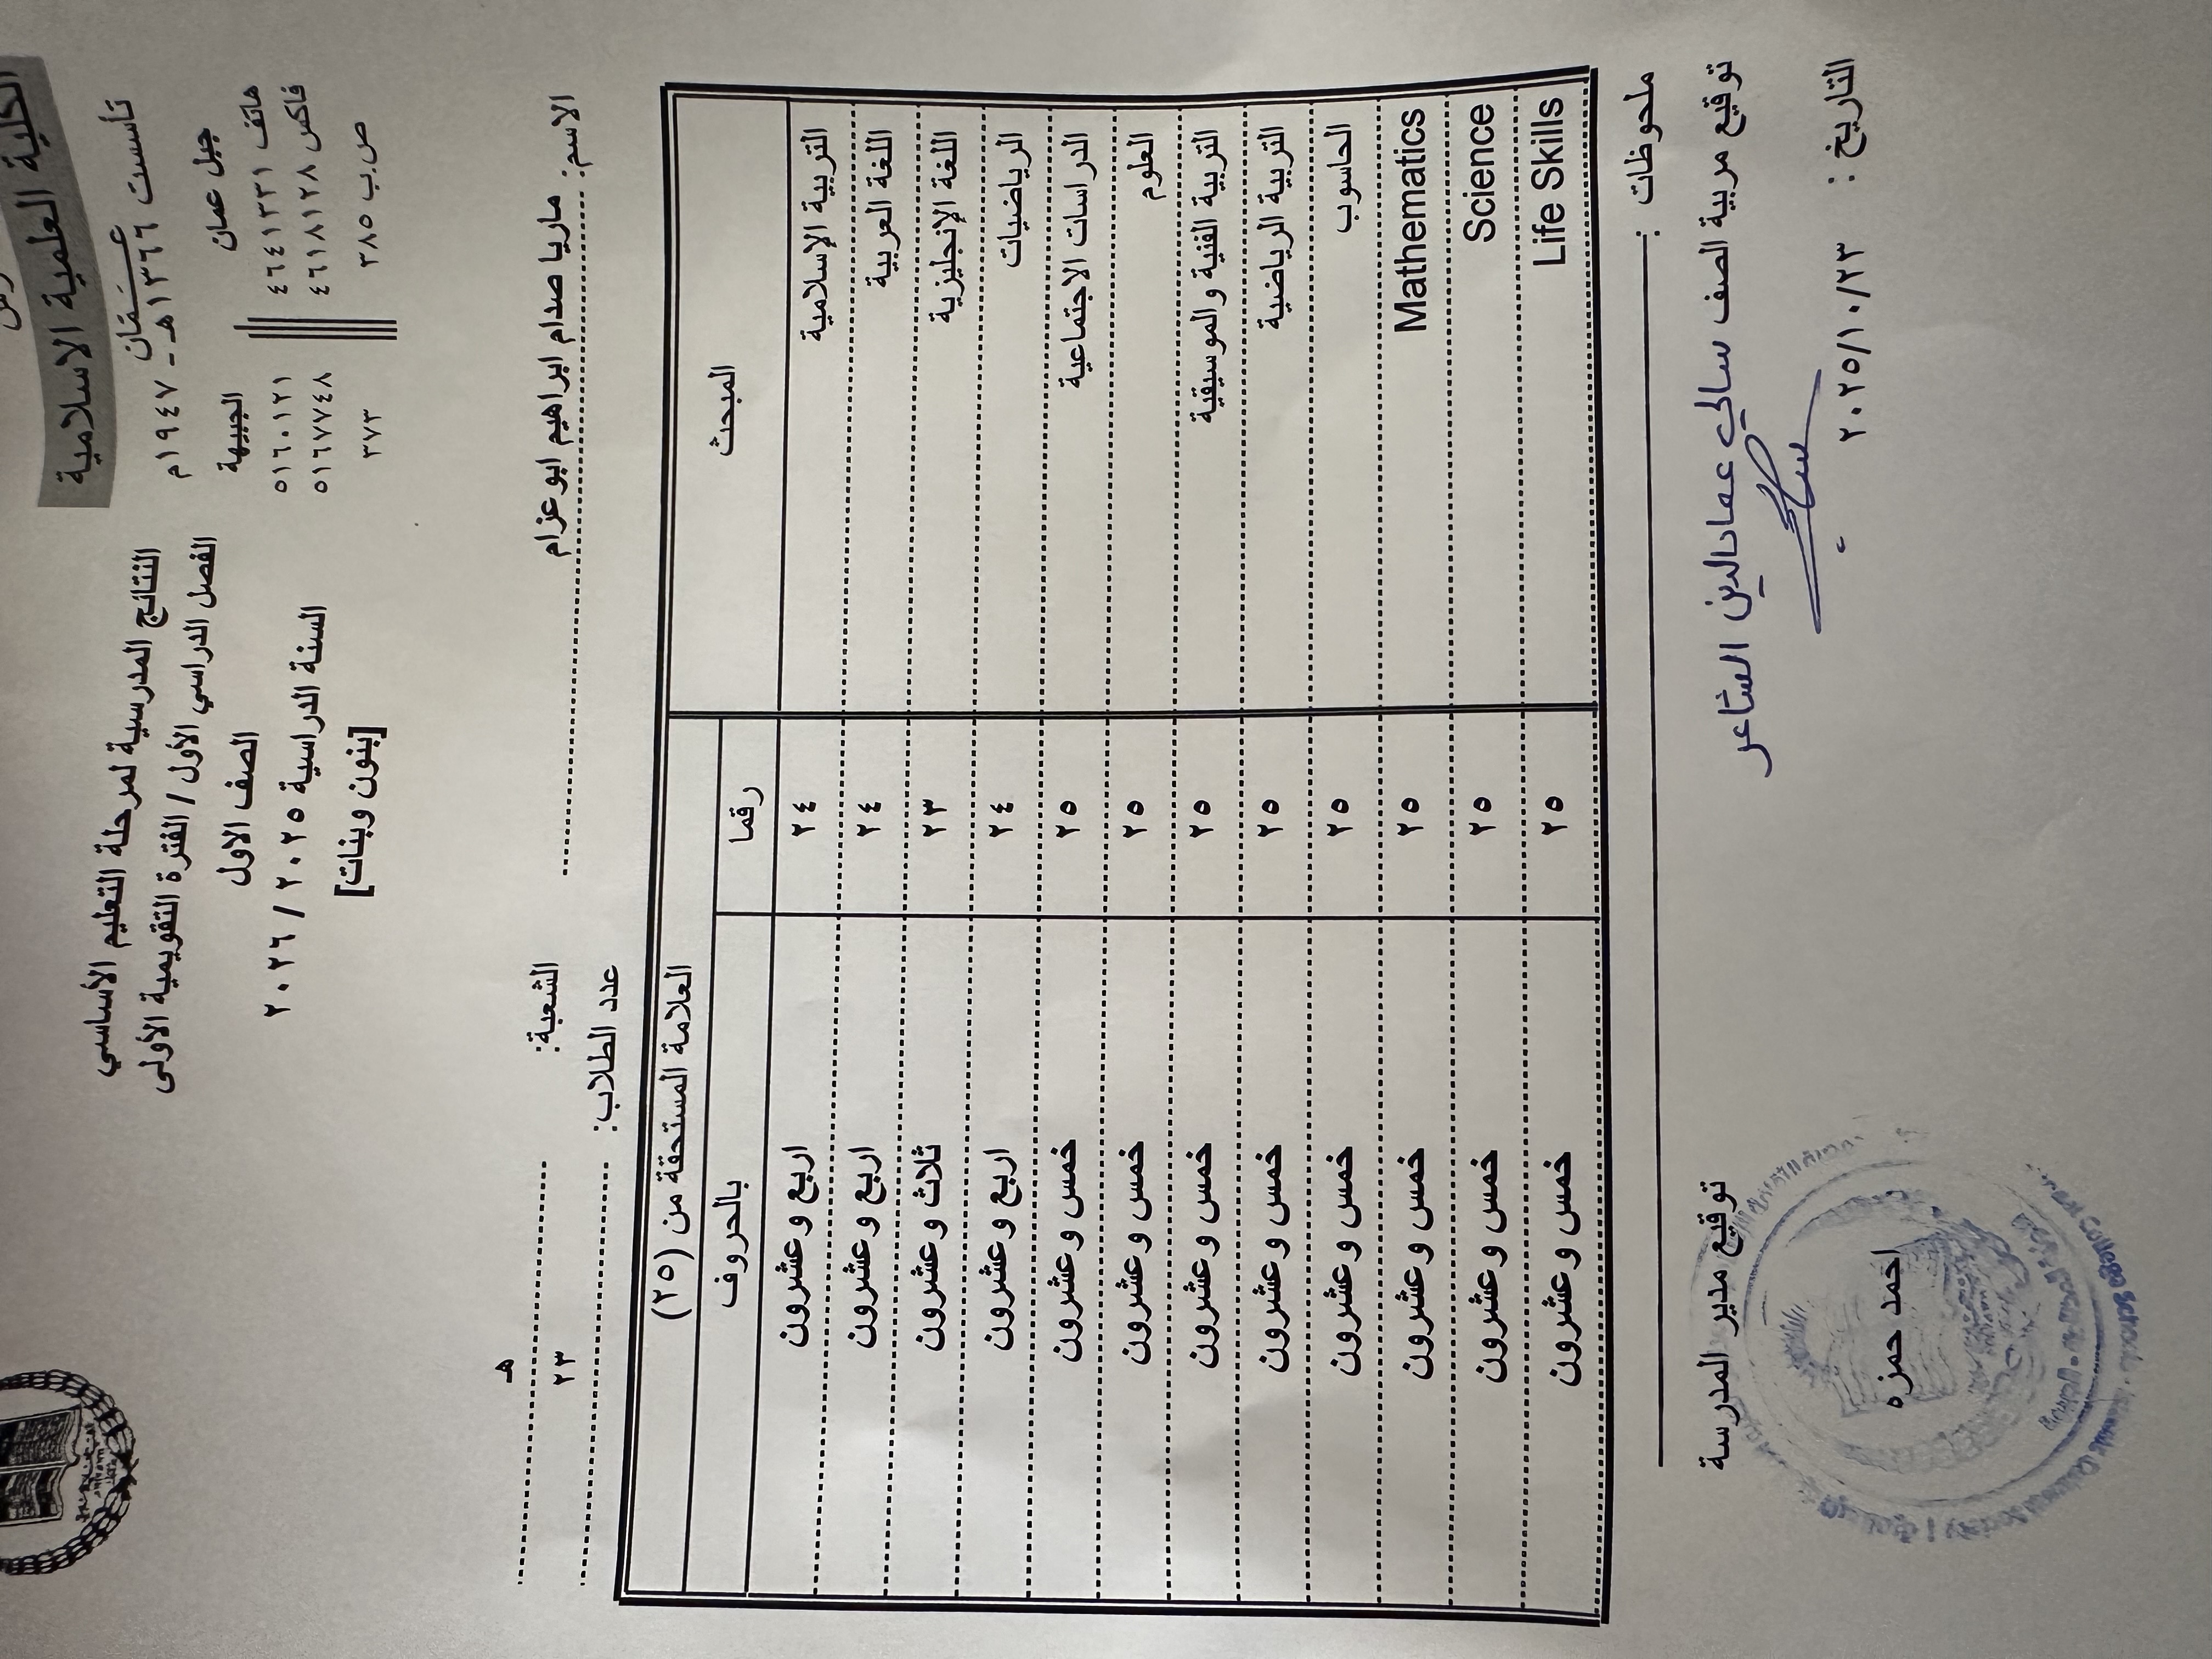 الكلية العلمية الاسلامية
عـــمّان
تأسست ١٣٦٦هـ - ١٩٤٧م
جبل عمان الجبيهة
هاتف ٤٦٤١٣٣١ ٥١٦٠١٢١
فاكس ٤٦١٨١٢٨ ٥١٦٧٧٤٨
ص.ب ٣٨٥ ٣٧٣
النتائج المدرسية لمرحلة التعليم الأساسي
الفصل الدراسي الأول / الفترة التقويمية الأولى
الصف الاول
السنة الدراسية ٢٠٢٥ / ٢٠٢٦
[بنون وبنات]
الاسم: ماريا صدام ابراهيم ابوعزام الشعبة: هـ
عدد الطلاب: ٢٣
المبحث العلامة المستحقة من (٢٥)
رقما بالحروف
التربية الإسلامية ٢٤ اربع وعشرون
اللغة العربية ٢٤ اربع وعشرون
اللغة الإنجليزية ٢٣ ثلاث وعشرون
الرياضيات ٢٤ اربع وعشرون
الدراسات الاجتماعية ٢٥ خمس وعشرون
العلوم ٢٥ خمس وعشرون
التربية الفنية والموسيقية ٢٥ خمس وعشرون
التربية الرياضية ٢٥ خمس وعشرون
الحاسوب ٢٥ خمس وعشرون
Mathematics ٢٥ خمس وعشرون
Science ٢٥ خمس وعشرون
Life Skills ٢٥ خمس وعشرون
ملحوظات :
توقيع مربية الصف سالي عمادالدين الشاعر توقيع مدير المدرسة
احمد حمزه
التاريخ : ٢٠٢٥/١٠/٢٣